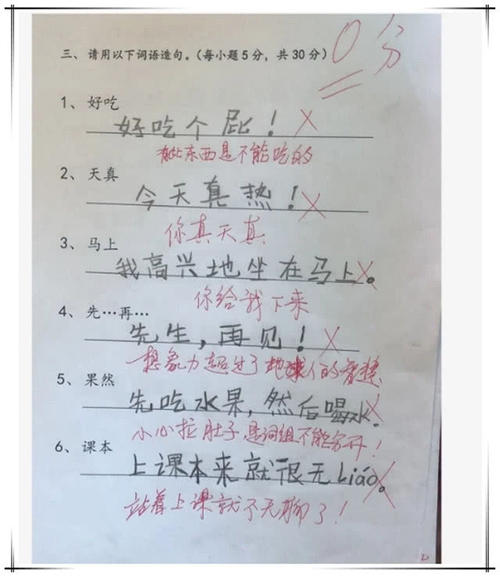 三、请用以下词语造句。（每小题5分，共30分）
0分
1、好吃
好吃个屁！
有些东西是不能吃的
2、天真
今天真热！
你真天真
3、马上
我高兴地坐在马上。
你给我下来
4、先…再…
先生，再见！
想象力超过了地球人的智慧
5、果然
先吃水果，然后喝水.
小心拉肚子 是词组不能分开！
6、课本
上课本来就很无liáo。
站着上课就不无聊了！